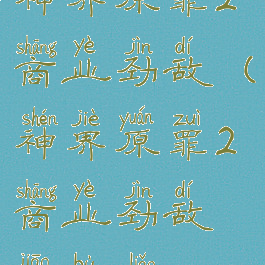 神界原罪2
shāng yè jìn dí
商业劲敌（
shén jiè yuán zuì
神界原罪2
shāng yè jìn dí
商业劲敌
jiān bù liǎo